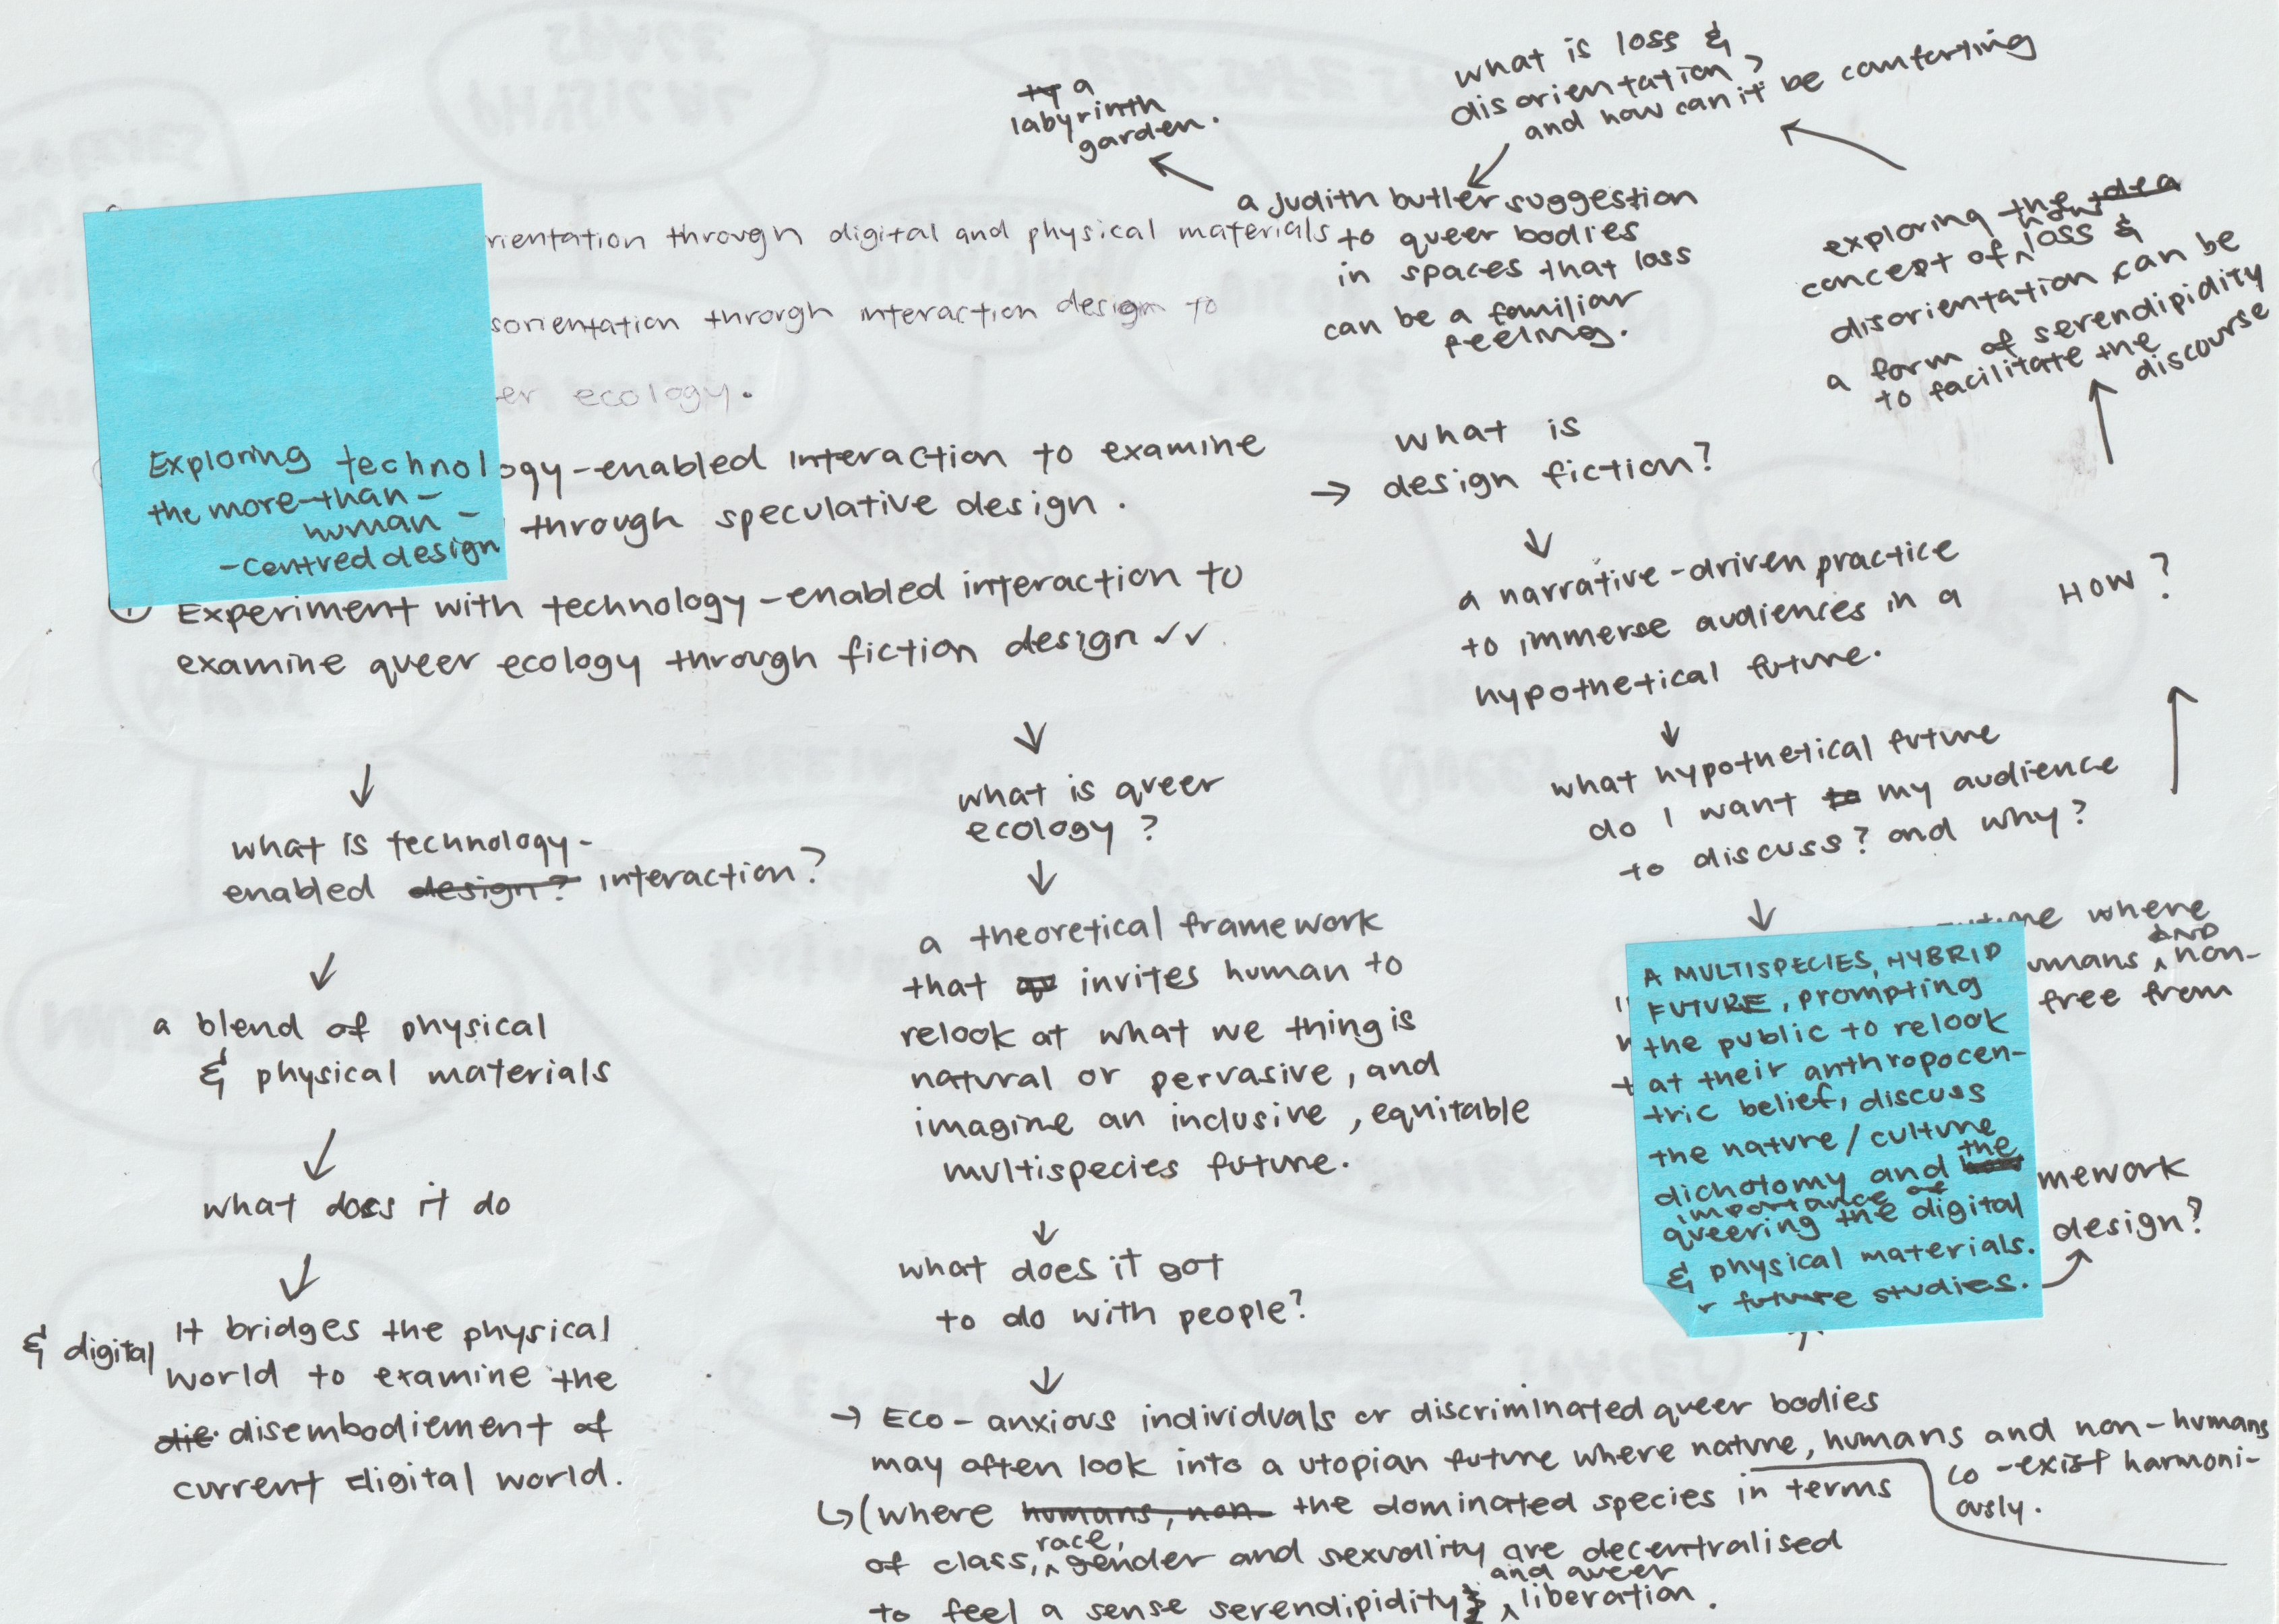 a
labyrinth
garden.
what is loss &
disorientation?
and how can it be comforting
a judith butler suggestion
to queer bodies
in spaces that loss
can be a familiar
feeling.
exploring the idea
concept of how loss &
disorientation can be
a form of serendipidity
to facilitate the
discourse
HOW?
rientation through digital and physical materials
sorientation through interaction design to
er ecology.
Exploring technology-enabled interaction to examine
the more-than-
human-
-centred design
through speculative design.
Experiment with technology-enabled interaction to
examine queer ecology through fiction design ✓✓
what is
→ design fiction?
a narrative-driven practice
to immerse audiences in a
hypothetical future.
what hypothetical future
do I want to my audience
to discuss? and why?
uture where
umans AND non-
free from
A MULTISPECIES, HYBRID
FUTURE, prompting
the public to relook
at their anthropocen-
tric belief, discuss
the nature/culture
dichotomy and the
importance of
queering the digital
& physical materials.
r future studies.
mework
design?
what is technology-
enabled design? interaction?
a blend of physical
& physical materials
what does it do
& digital
It bridges the physical
world to examine the
die disembodiement of
current digital world.
what is queer
ecology?
a theoretical framework
that invites human to
relook at what we thing is
natural or pervasive, and
imagine an inclusive, equitable
multispecies future.
what does it got
to do with people?
→ Eco-anxious individuals or discriminated queer bodies
may often look into a utopian future where nature, humans and non-humans
co-exist harmoni-
ously.
(where humans, non- the dominated species in terms
of class, race, gender and sexuality are decentralised
to feel a sense serendipidity & and queer liberation.